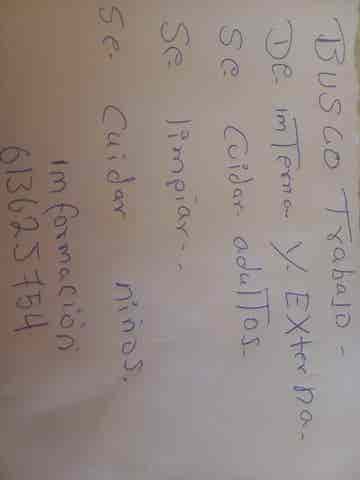 BUSCO Trabajo-
De. interna y. Externa-
Se. Cuidar adultos-
Se. limpiar..
Se. Cuidar niños.
información
613625754